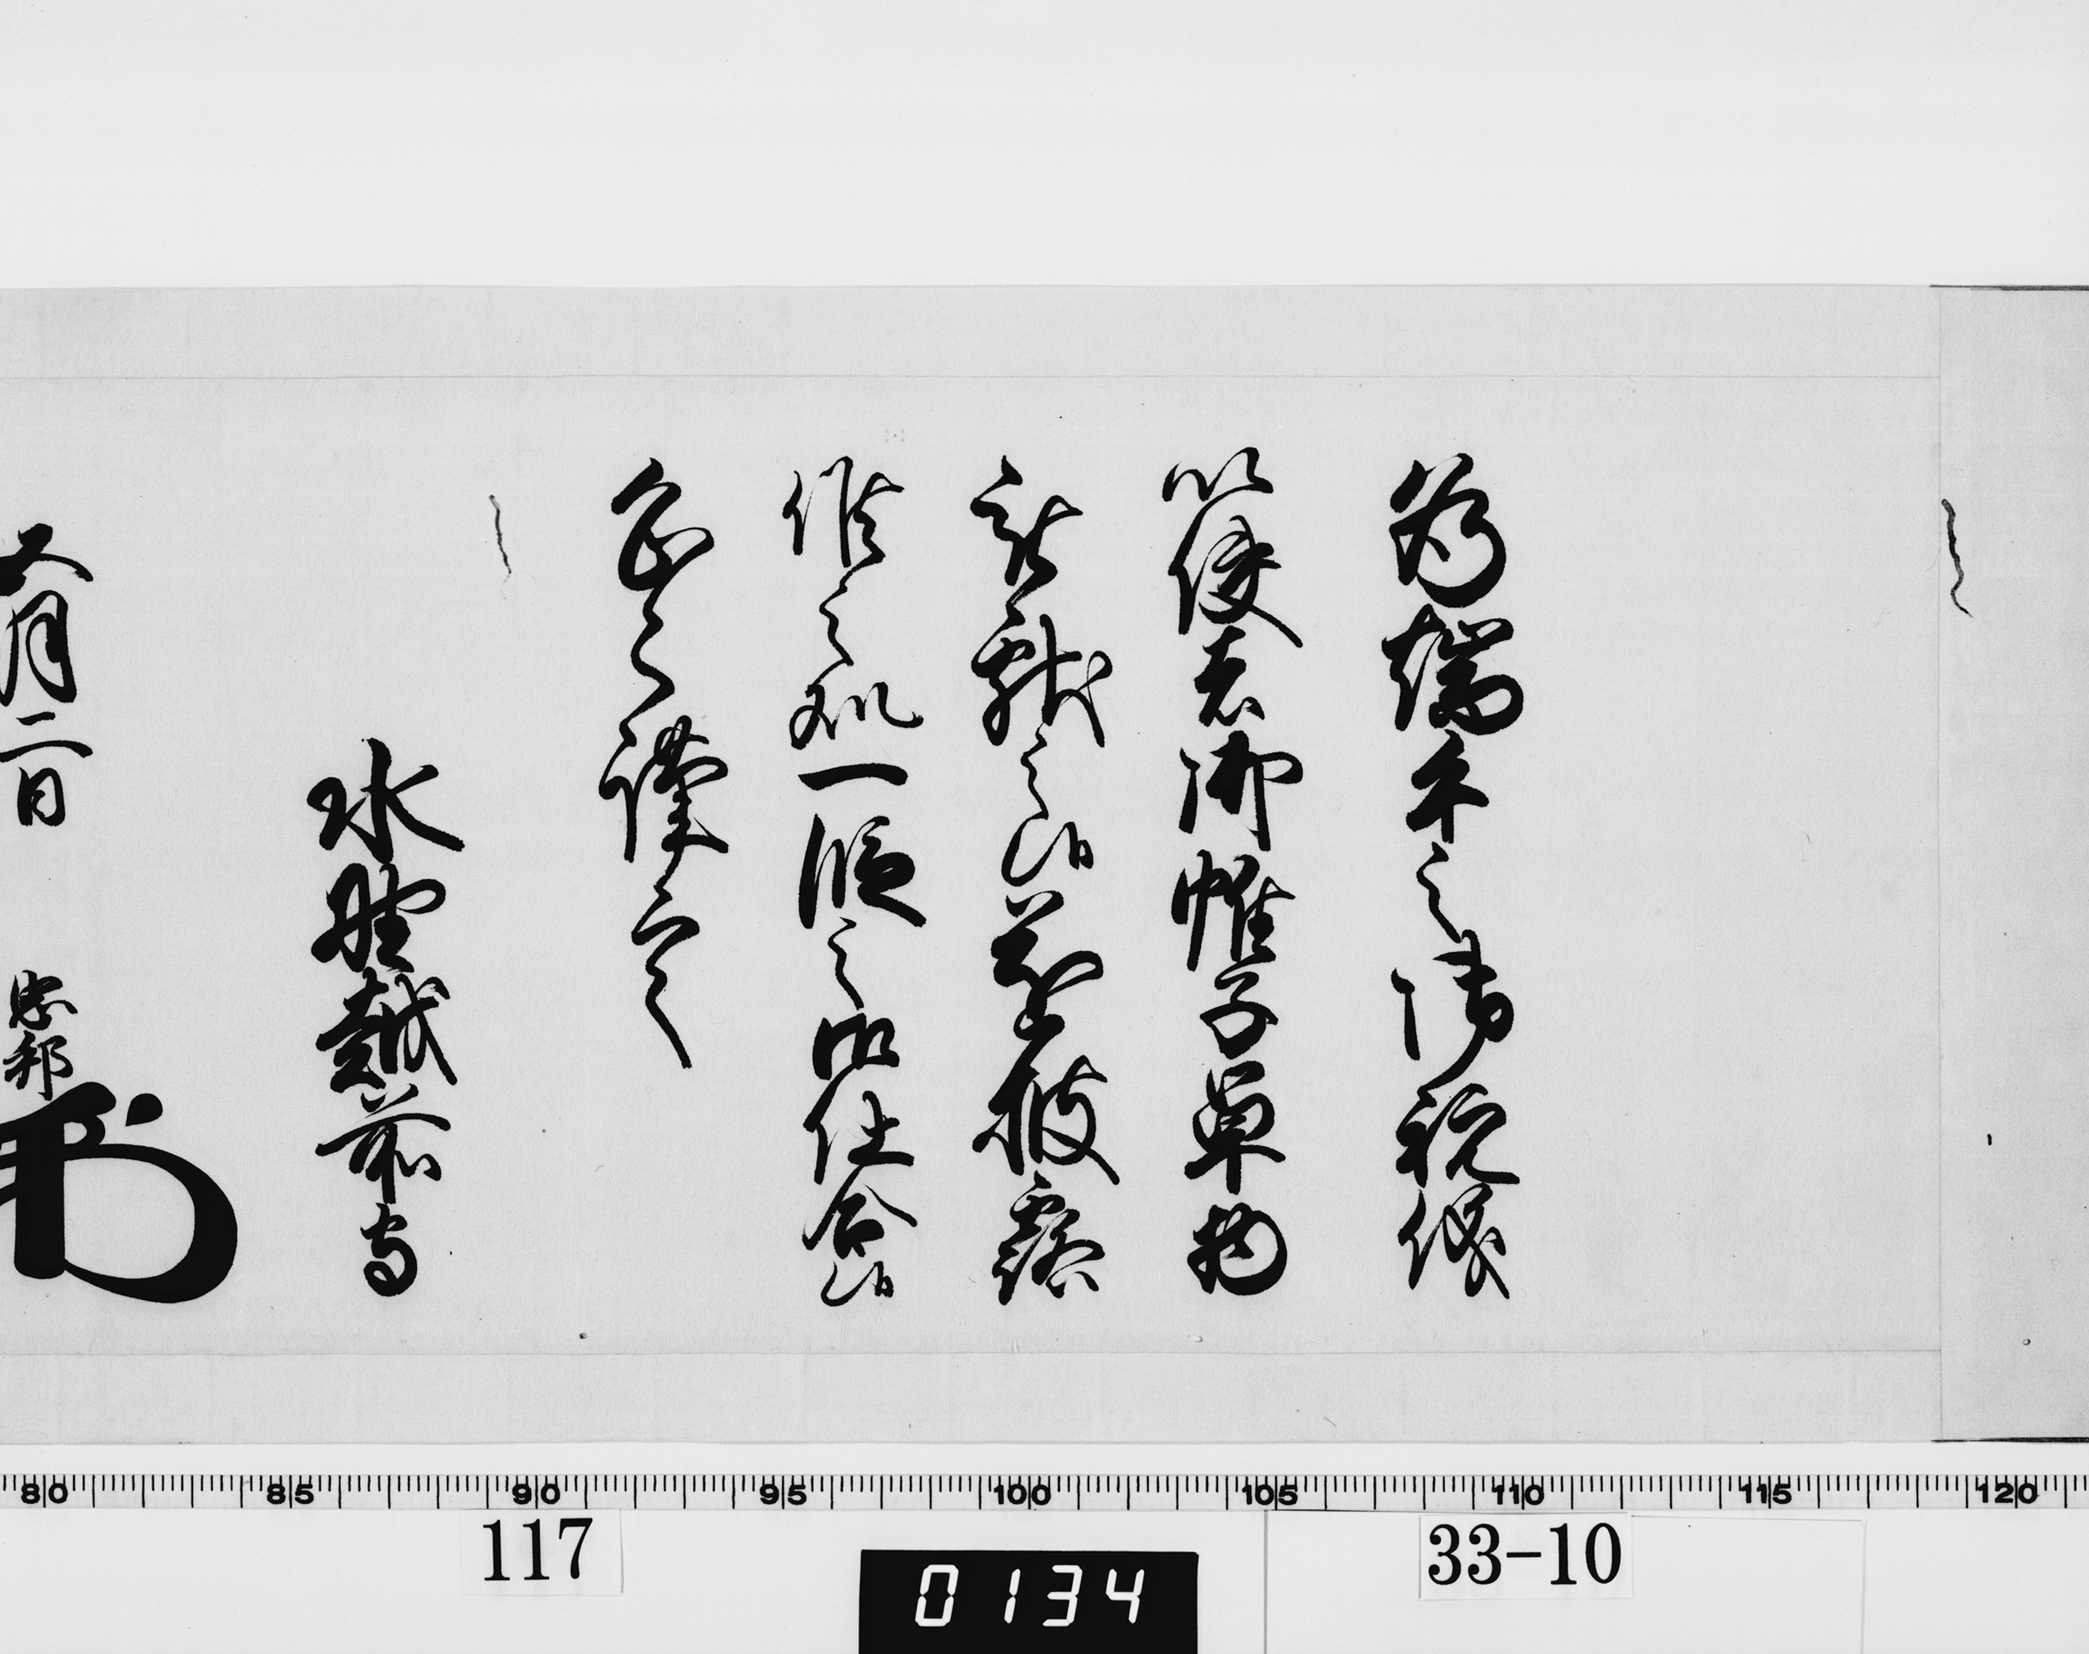 為端午之御祝儀
以使者御帷子単物
被献之候遂披露
候之処一段之御仕合候
恐々謹言
水野越前守
五月二日 忠邦
80 85 90 95 100 105 110 115 120
117
0134
33-10